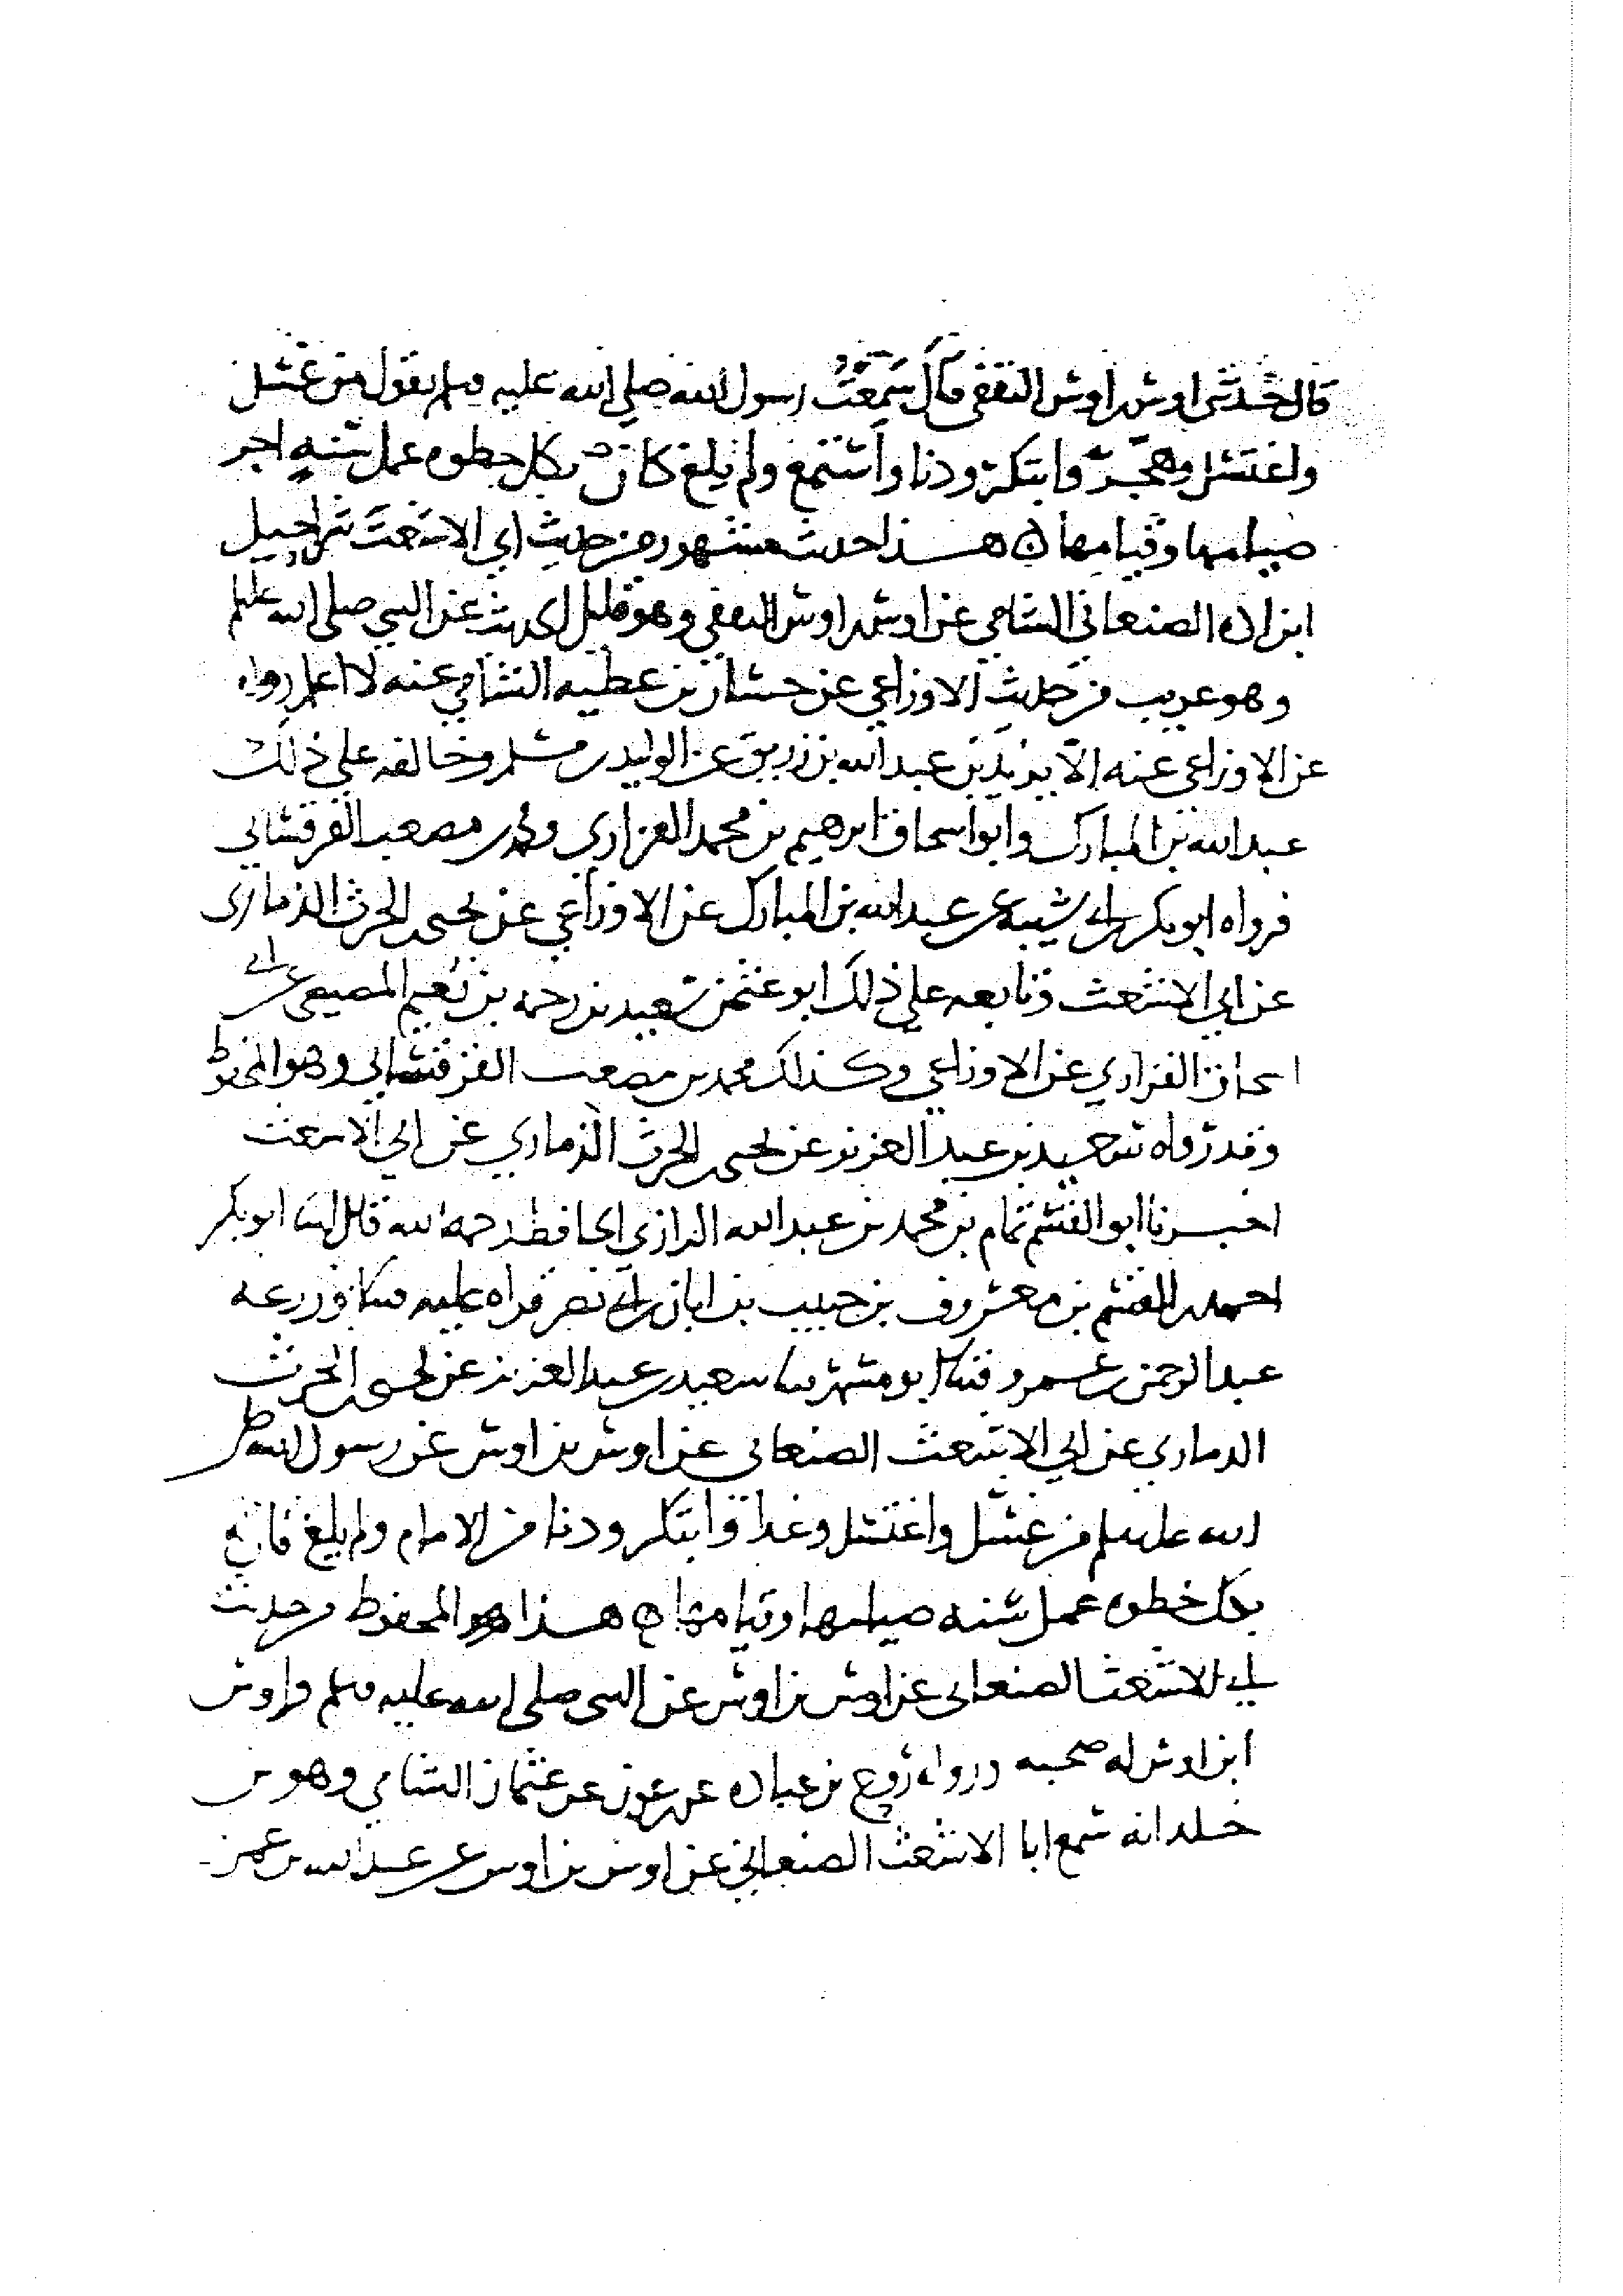 قال حدثني اوس بن اوس الثقفي قال سمعت رسول الله صلى الله عليه وسلم يقول من غسل
واغتسل وهجر وابتكر ودنا واستمع ولم يلغ كان بكل خطوه عمل سنه اجر
صيامها وقيامها هذا حديث مشهور من حديث ابي الاشعث شراحيل
ابن اده الصنعاني الشامي عن اوس بن اوس الثقفي وهو قليل الحديث عن النبي صلى الله عليه وسلم
وهو غريب من حديث الاوزاعي عن حسان بن عطيه الشامي عنه لا اعلم رواه
عن الاوزاعي عنه الا يزيد بن عبد الله بن زريق عن الوليد بن مسلم وخالفه على ذلك
عبد الله بن المبارك وابو اسحاق ابرهيم بن محمد الفزاري ومحمد بن مصعب القرقساني
فرواه ابو بكر بن ابي شيبه عن عبد الله بن المبارك عن الاوزاعي عن يحيى بن الحرث الذماري
عن ابي الاشعث وتابعه على ذلك ابو عثمن سعيد بن رحمه بن نعيم المصيصي عن ابي
اسحاق الفزاري عن الاوزاعي وكذلك محمد بن مصعب القرقساني وهو المحفوظ
وقد رواه سعيد بن عبد العزيز عن يحيى بن الحرث الذماري عن ابي الاشعث
اخبرنا ابو القسم تمام بن محمد بن عبد الله الرازي الحافظ رحمه الله قال ابنا ابو بكر
احمد بن القسم بن معروف بن حبيب بن ابان بن ابي نصر قراه عليه ثنا ابو زرعه
عبد الرحمن بن عمرو ثنا ابو مسهر ثنا سعيد بن عبد العزيز عن يحيى بن الحرث
الذماري عن ابي الاشعث الصنعاني عن اوس بن اوس عن رسول الله صلى
الله عليه وسلم من غسل واغتسل وغدا وابتكر ودنا من الامام ولم يلغ كان له
بكل خطوه عمل سنه صيامها وقيامها هذا هو المحفوظ من حديث
ابي الاشعث الصنعاني عن اوس بن اوس عن النبي صلى الله عليه وسلم واوس
ابن اوس له صحبه ورواه روح بن عباده عن ثور عن عثمان الشامي وهو بن
خلد انه سمع ابا الاشعث الصنعاني عن اوس بن اوس عن عبد الله بن عمر